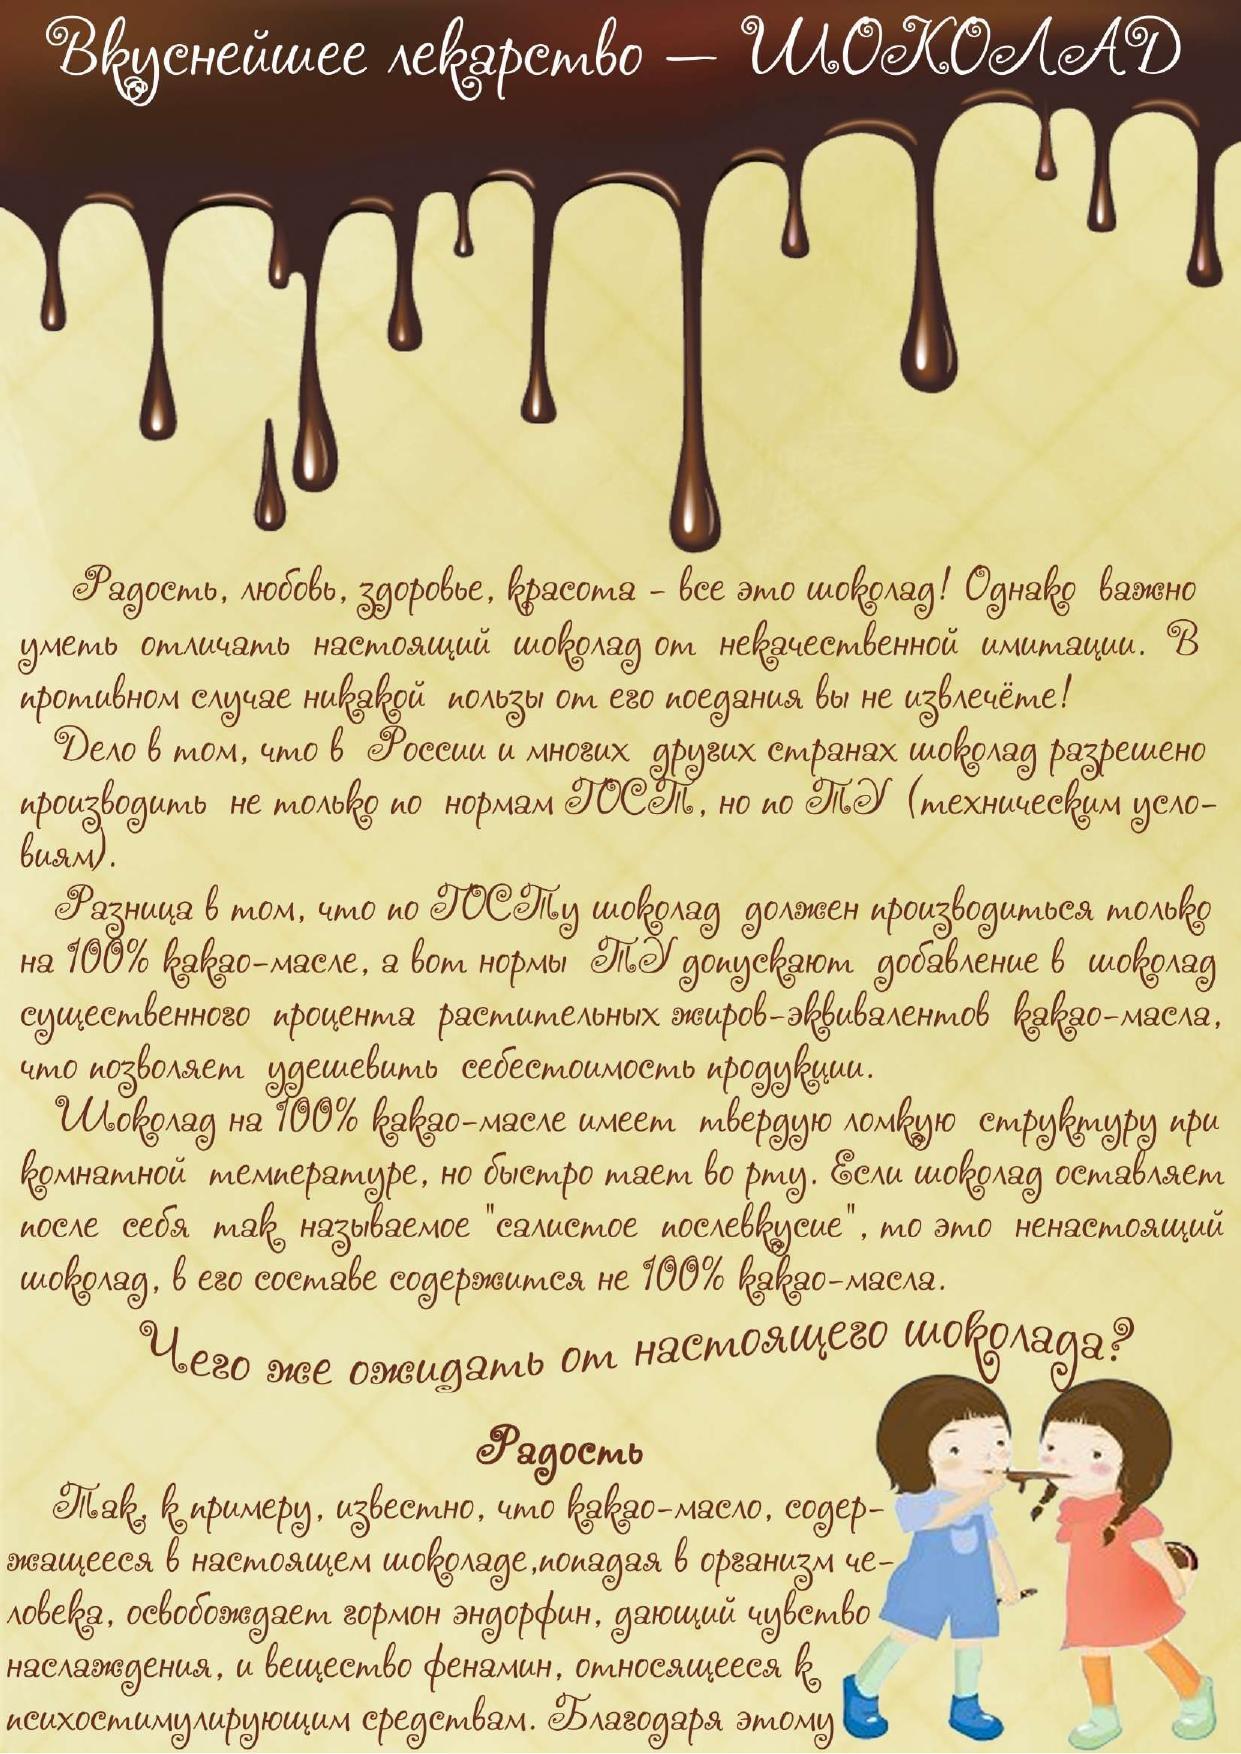 Вкуснейшее лекарство — ШОКОЛАД
Радость, любовь, здоровье, красота - все это шоколад! Однако важно
уметь отличать настоящий шоколад от некачественной имитации. В
противном случае никакой пользы от его поедания вы не извлечёте!
Дело в том, что в России и многих других странах шоколад разрешено
производить не только по нормам ГОСТ, но по ТУ (техническим усло-
виям).
Разница в том, что по ГОСТу шоколад должен производиться только
на 100% какао-масле, а вот нормы ТУ допускают добавление в шоколад
существенного процента растительных жиров-эквивалентов какао-масла,
что позволяет удешевить себестоимость продукции.
Шоколад на 100% какао-масле имеет твердую ломкую структуру при
комнатной температуре, но быстро тает во рту. Если шоколад оставляет
после себя так называемое "салистое послевкусие", то это ненастоящий
шоколад, в его составе содержится не 100% какао-масла.
Чего же ожидать от настоящего шоколада?
Радость
Так, к примеру, известно, что какао-масло, содер-
жащееся в настоящем шоколаде,попадая в организм че-
ловека, освобождает гормон эндорфин, дающий чувство
наслаждения, и вещество фенамин, относящееся к
психостимулирующим средствам. Благодаря этому